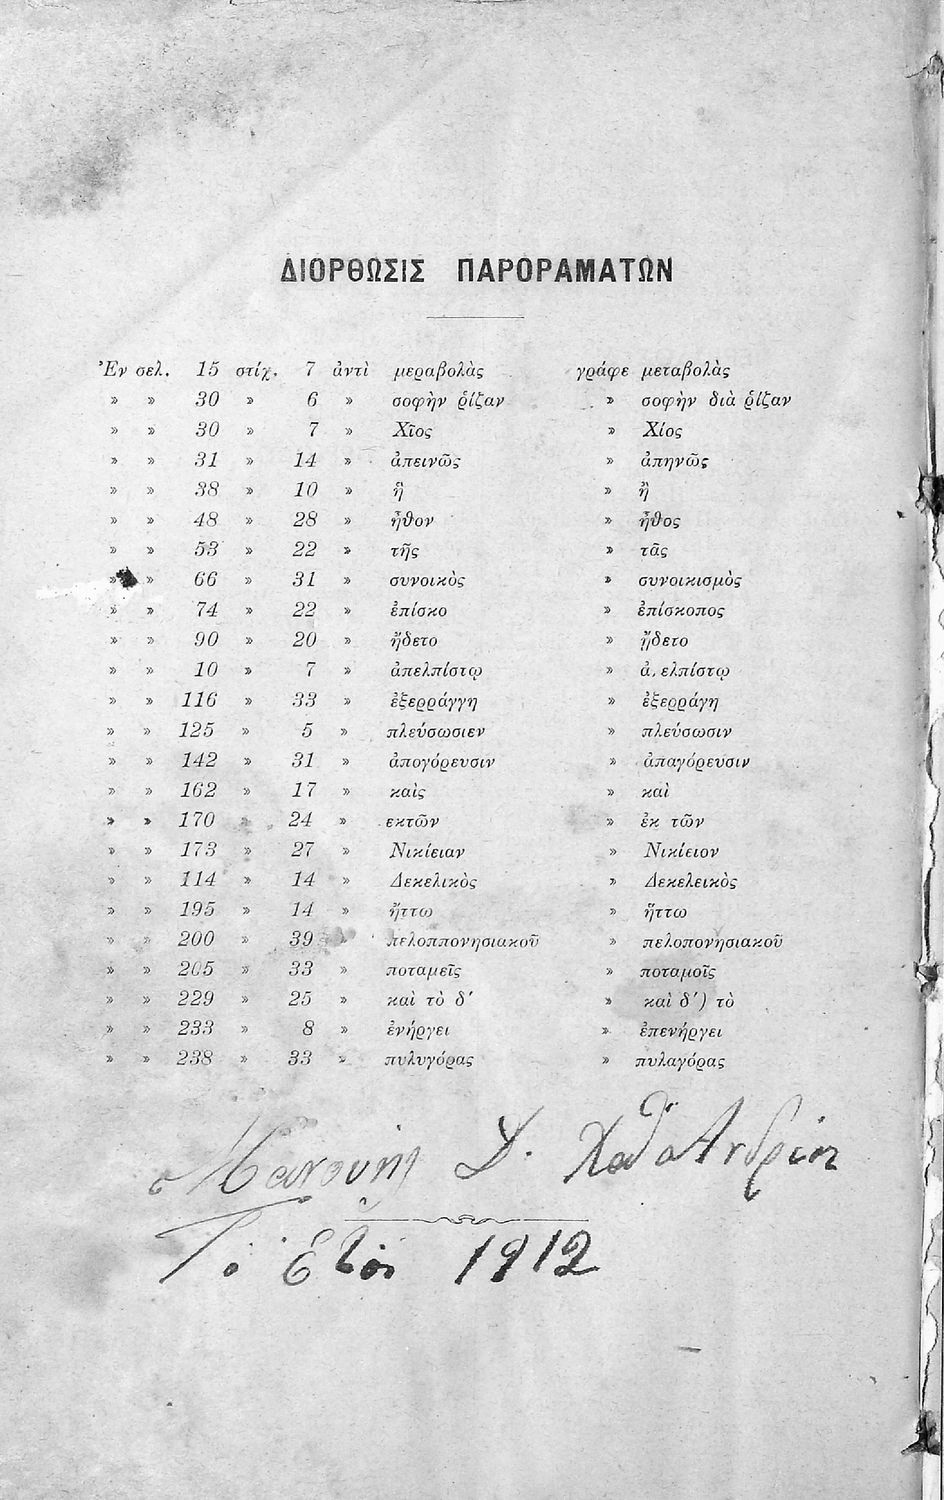 ΔΙΟΡΘΩΣΙΣ ΠΑΡΟΡΑΜΑΤΩΝ
Ἐν σελ. 15 στίχ. 7 ἀντὶ μεραβολὰς γράφε μεταβολὰς
» » 30 » 6 » σοφὴν ῥίζαν » σοφὴν διὰ ῥίζαν
» » 30 » 7 » Χῖος » Χίος
» » 31 » 14 » ἀπεινῶς » ἀπηνῶς
» » 38 » 10 » ἢ » ἢ
» » 48 » 28 » ἦθον » ἦθος
» » 53 » 22 » τῆς » τᾶς
» » 66 » 31 » συνοικὸς » συνοικισμὸς
» » 74 » 22 » ἐπίσκο » ἐπίσκοπος
» » 90 » 20 » ἤδετο » ᾔδετο
» » 10 » 7 » ἀπελπίστῳ » ἀ. ελπίστῳ
» » 116 » 33 » ἐξερράγγη » ἐξερράγη
» » 125 » 5 » πλεύσωσιεν » πλεύσωσιν
» » 142 » 31 » ἀπογόρευσιν » ἀπαγόρευσιν
» » 162 » 17 » καὶς » καὶ
» » 170 » 24 » εκτῶν » ἐκ τῶν
» » 173 » 27 » Νικίειαν » Νικίειον
» » 114 » 14 » Δεκελικὸς » Δεκελεικὸς
» » 195 » 14 » ἤττω » ἥττω
» » 200 » 39 » πελοππονησιακοῦ » πελοπονησιακοῦ
» » 205 » 33 » ποταμεῖς » ποταμοῖς
» » 229 » 25 » καὶ τὸ δ' » καὶ δ') τὸ
» » 233 » 8 » ἐνήργει » ἐπενήργει
» » 238 » 33 » πυλυγόρας » πυλαγόρας
ο Μανουήλ Δ.
Τό Ετός 1912